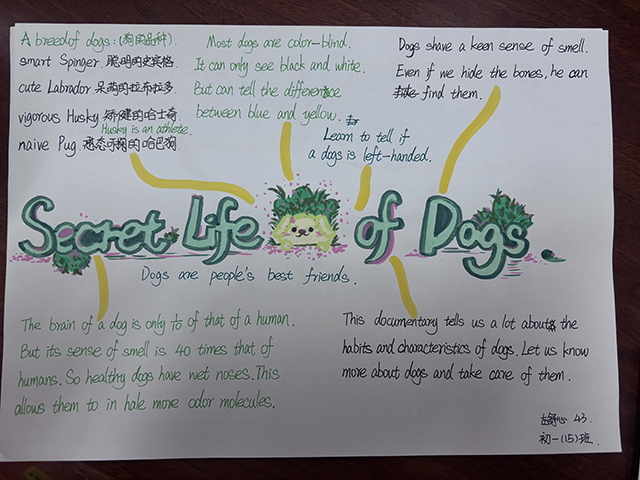 A breed of dogs: (狗的品种).
smart Spinger. 聪明的史宾格.
cute Labrador 呆萌的拉布拉多.
vigorous Husky 矫健的哈士奇
Husky is an athlete.
naive Pug. 憨态可掬的哈巴狗
Most dogs are color-blind.
It can only see black and white.
But can tell the difference
between blue and yellow.
Learn to tell if
a dogs is left-handed.
Dogs shave a keen sense of smell.
Even if we hide the bones, he can
find them.
Secret Life of Dogs
Dogs are people's best friends.
The brain of a dog is only 1/10 of that of a human.
But its sense of smell is 40 times that of
humans. So healthy dogs have wet noses. This
allows them to in hale more odor molecules.
This documentary tells us a lot about the
habits and characteristics of dogs. Let us know
more about dogs and take care of them.
舒心 43
初一(15)班